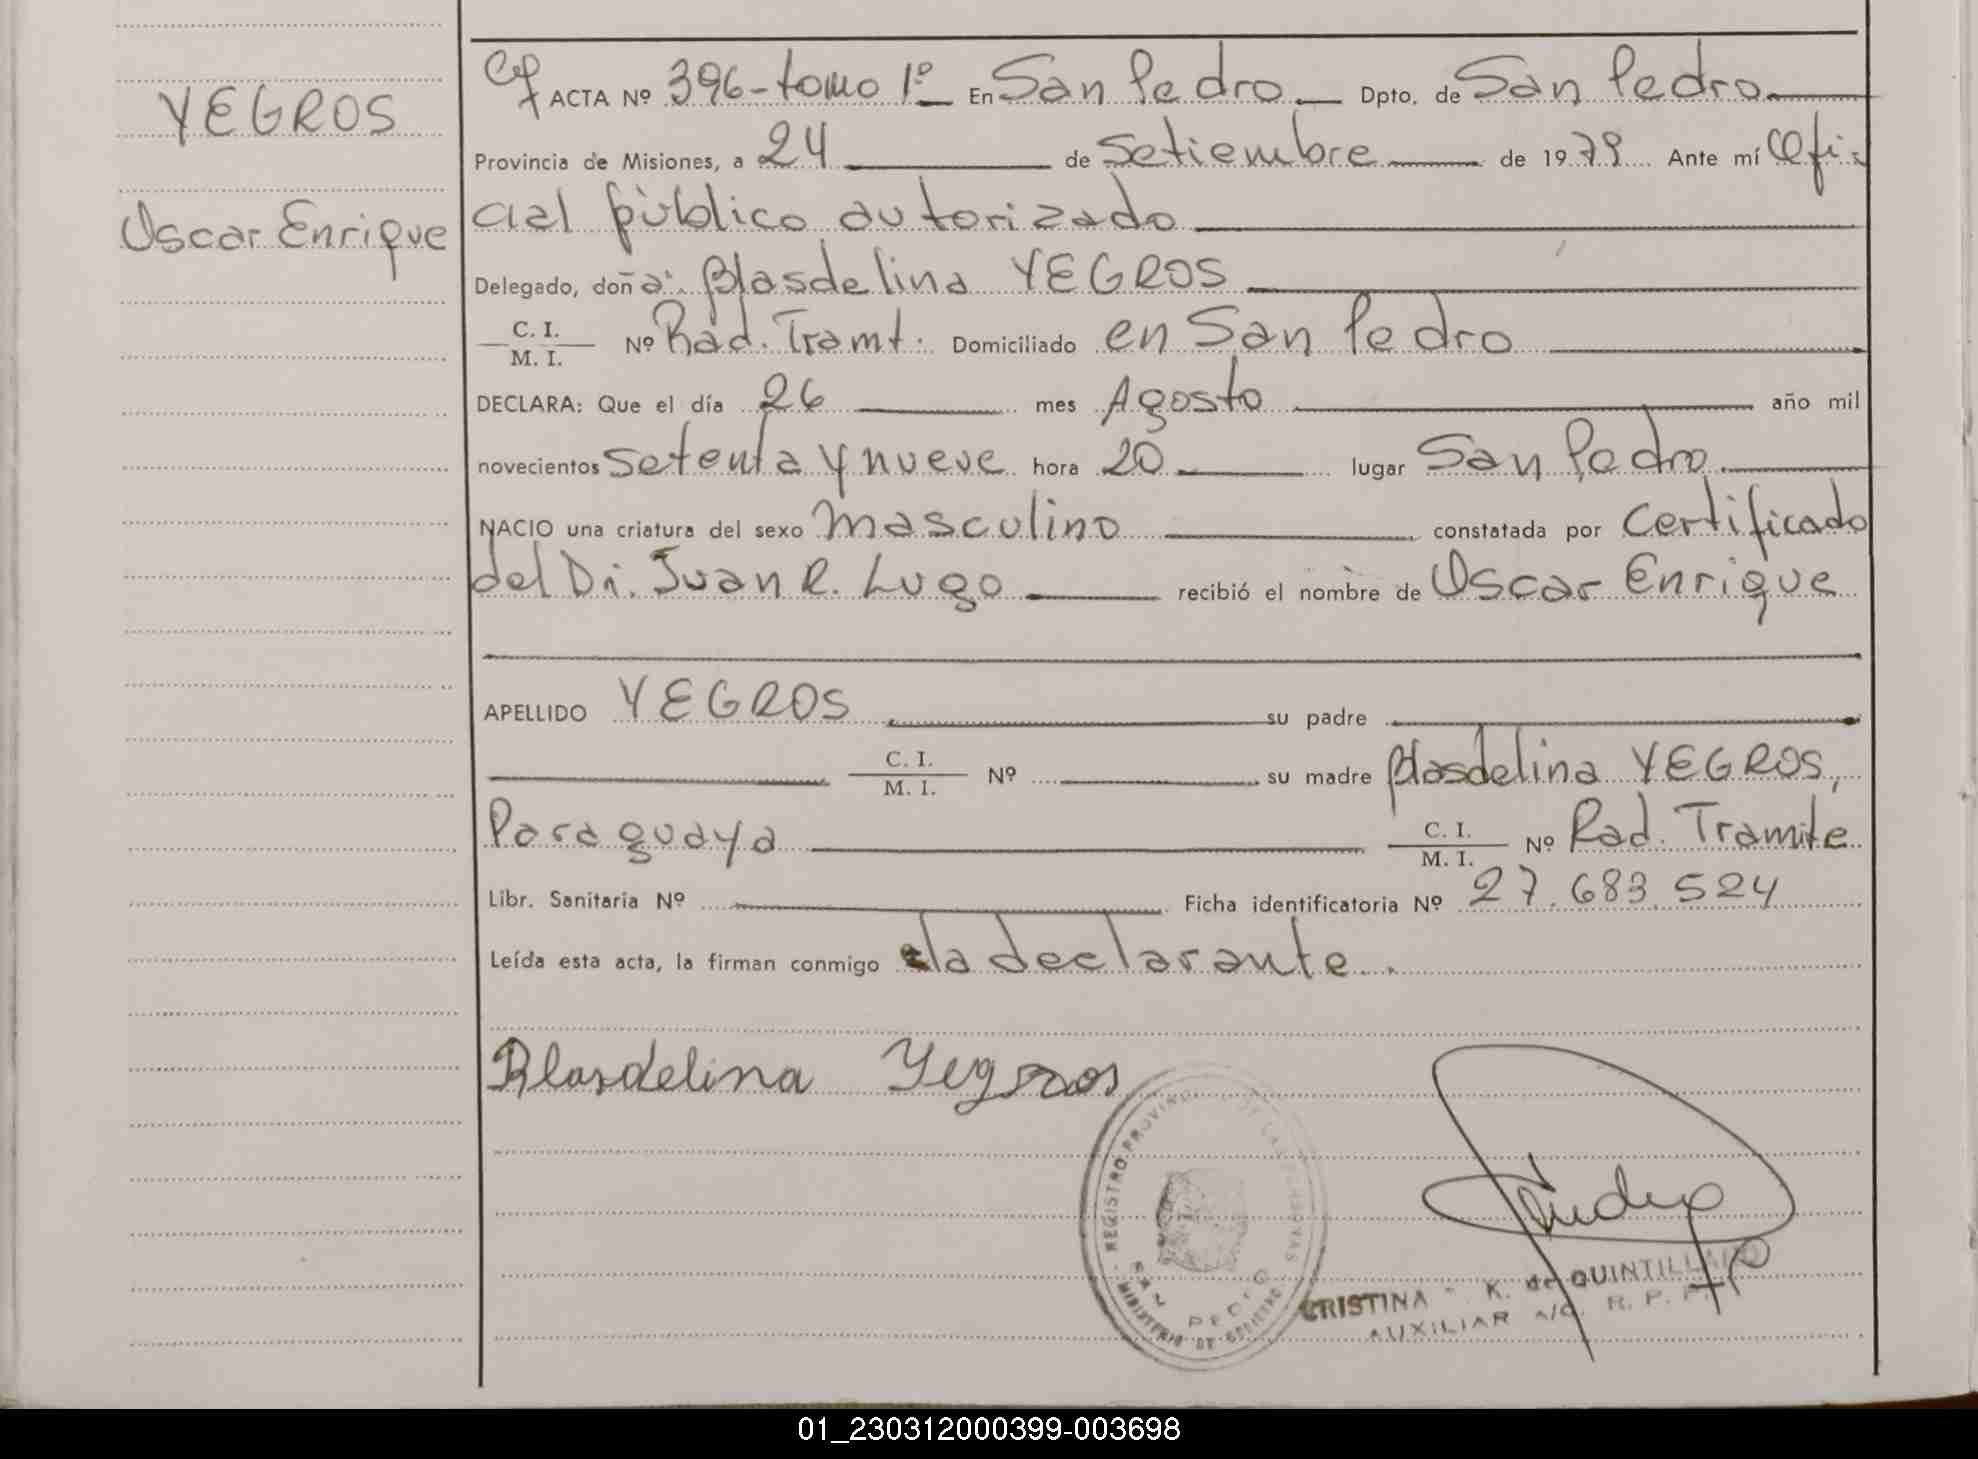 YEGROS
Oscar Enrique
ACTA Nº 396-tomo 1º En San Pedro Dpto. de San Pedro
Provincia de Misiones, a 24 de Setiembre de 1979 Ante mí Ofi-
cial público autorizado
Delegado, doña: Blasdelina YEGROS
C. I. / M. I. Nº Rad. Tramt. Domiciliado en San Pedro
DECLARA: Que el día 26 mes Agosto año mil
novecientos setenta y nueve hora 20 lugar San Pedro
NACIO una criatura del sexo masculino constatada por Certificado
del Dr. Juan R. Lugo recibió el nombre de Oscar Enrique
APELLIDO YEGROS su padre
C. I. / M. I. Nº su madre Blasdelina YEGROS,
Paraguaya C. I. / M. I. Nº Rad. Tramite
Libr. Sanitaria Nº Ficha identificatoria Nº 27.683.524
Leída esta acta, la firman conmigo la declarante.
Blasdelina Yegros
REGISTRO PROVINC DE LAS PERSONAS
SAN PEDRO
MINISTERIO DE GOBIERNO
CRISTINA K. de QUINTILLANO
AUXILIAR A/C. R. P. P.
01_230312000399-003698